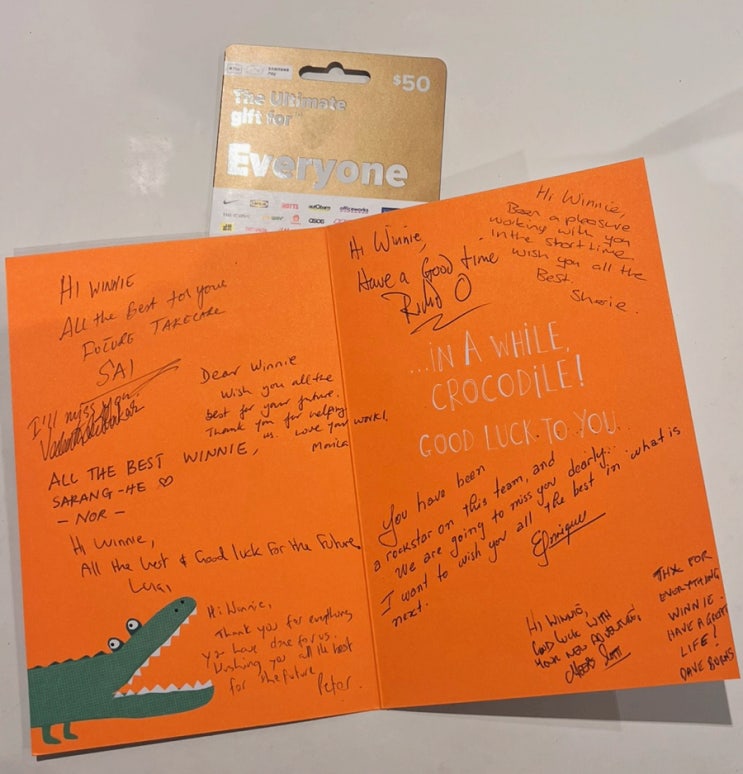 $50
The Ultimate
gift for
Everyone
IKEA
officeworks
asos
HI WINNIE
All the best for your
FUTURE TAKECARE
SAI
I'll miss you.
Dear Winnie
Wish you all the
best for your future.
Thank you for helping
us. Love your work!
Monica
ALL THE BEST WINNIE,
SARANG-HE ♡
- NOR -
Hi Winnie,
All the best & Good luck for the future.
Luigi
Hi Winnie,
Thank you for everything
you have done for us.
Wishing you all the best
for the future
Peter.
Hi Winnie,
Have a Good time
Hi Winnie,
Been a pleasure
working with you
in the short time.
Wish you all the
Best.
...IN A WHILE,
CROCODILE!
GOOD LUCK TO YOU
You have been
a rockstar on this team, and
We are going to miss you dearly.
I want to wish you all the best in what is
next.
Enrique
HI WINNIE,
GOOD LUCK WITH
YOUR NEW ADVENTURE,
CHEERS
THX FOR
EVERYTHING
WINNIE.
HAVE A GREAT
LIFE!
DAVE BURNS